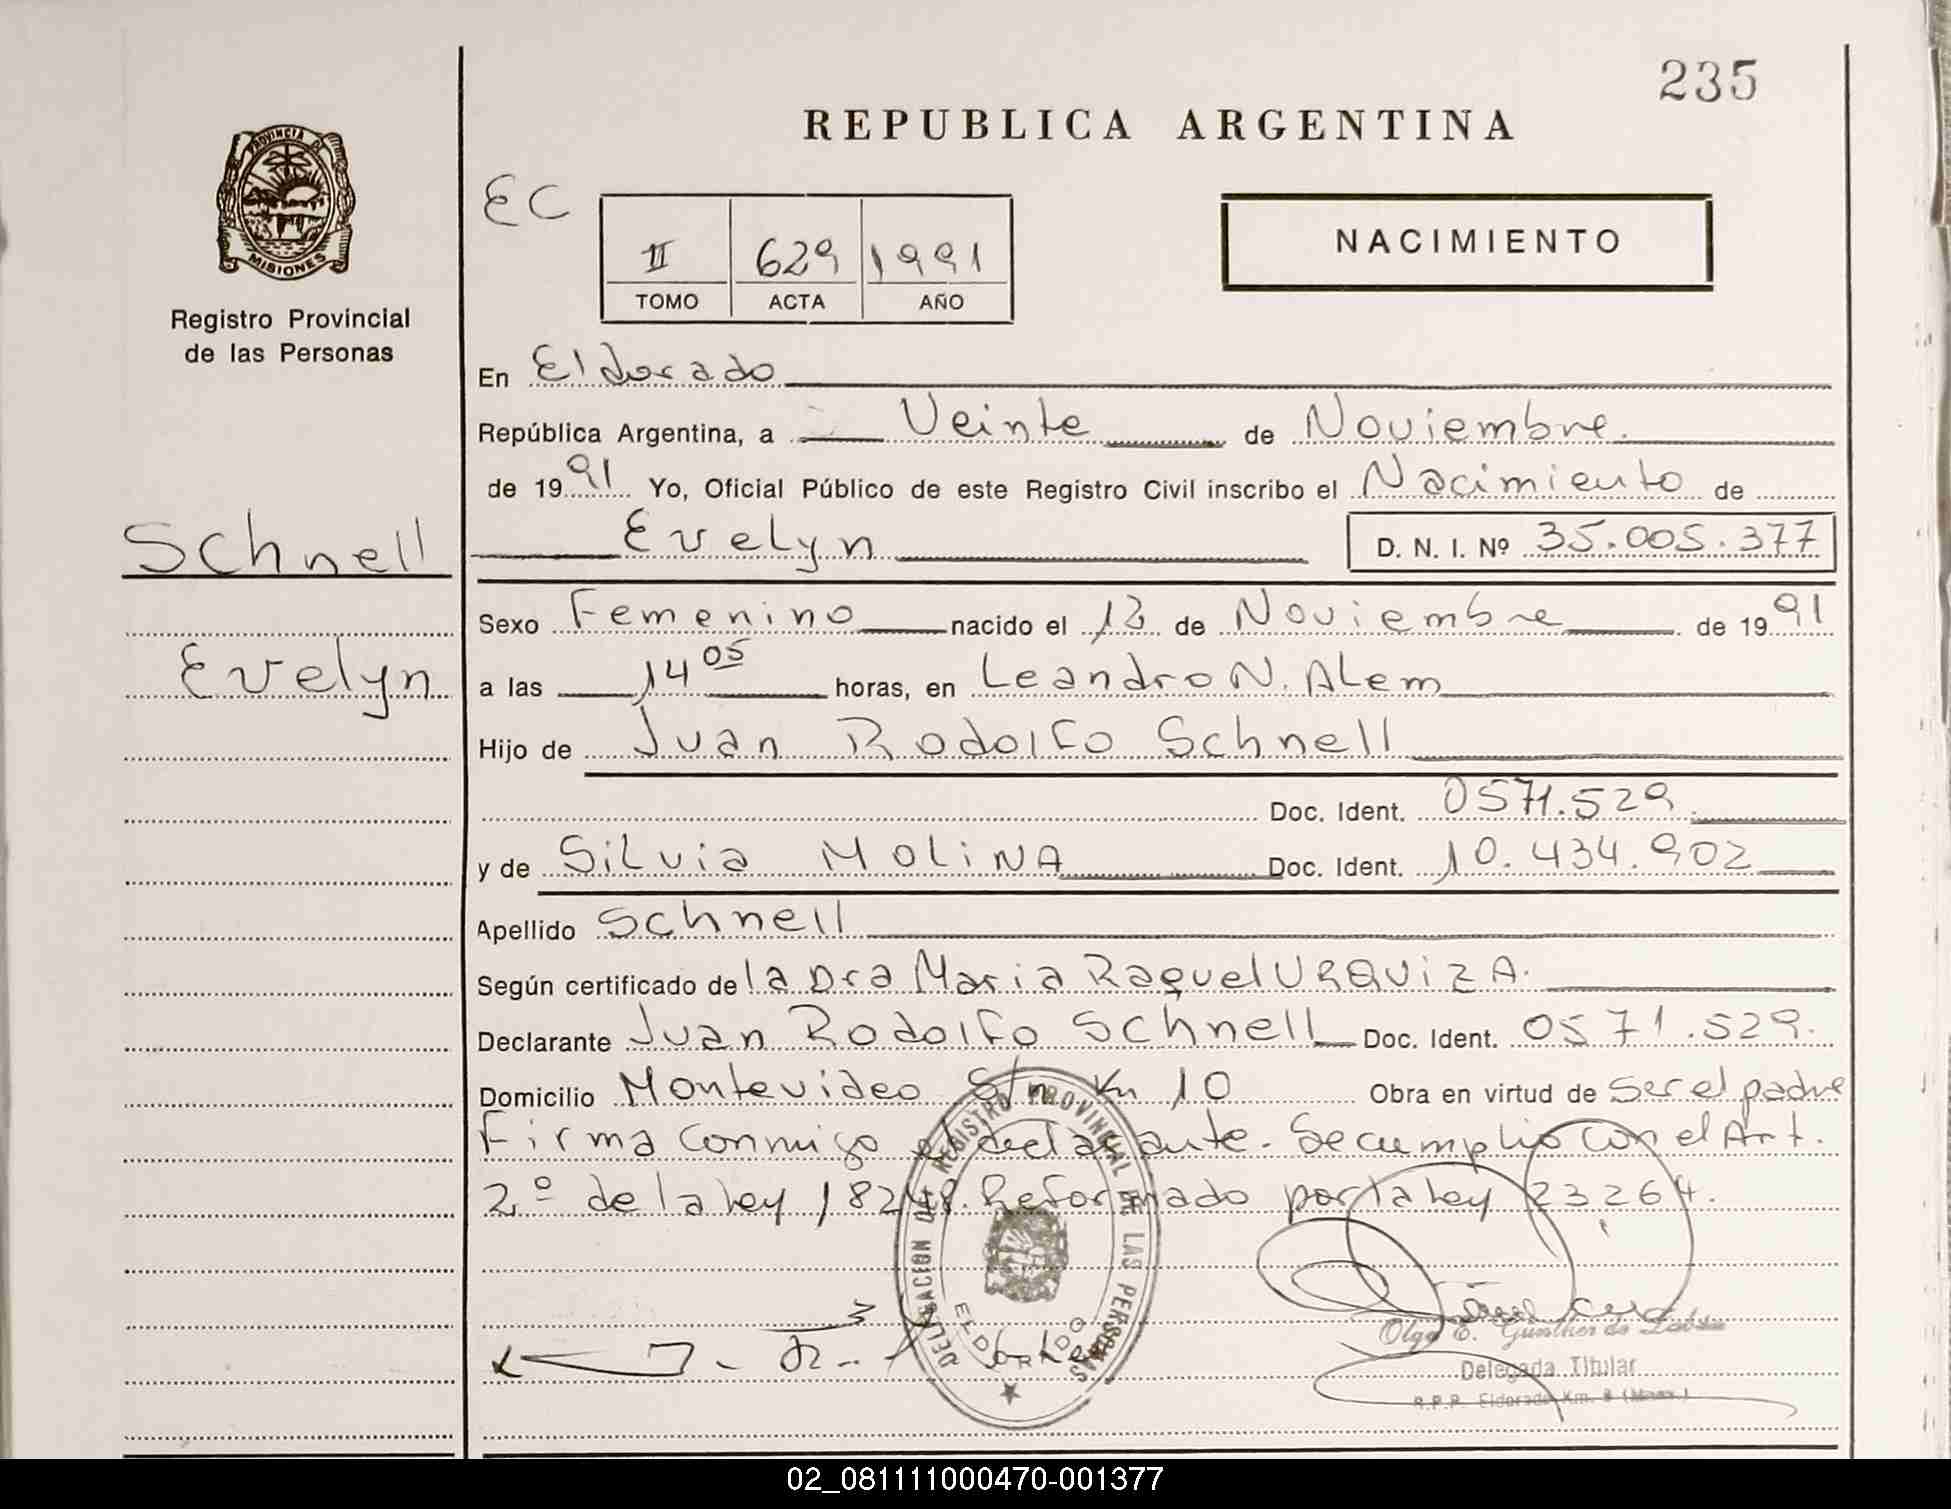 235
REPUBLICA ARGENTINA
PROVINCIA DE
MISIONES
Registro Provincial
de las Personas
EC
II 629 1991
TOMO ACTA AÑO
NACIMIENTO
En Eldorado
República Argentina, a Veinte de Noviembre.
de 1991 Yo, Oficial Público de este Registro Civil inscribo el Nacimiento de
Schnell
Evelyn D. N. I. Nº 35.005.377
Sexo Femenino nacido el 13 de Noviembre de 1991
Evelyn
a las 14 05 horas, en Leandro N. Alem
Hijo de Juan Rodolfo Schnell
Doc. Ident. 0571.529.
y de Silvia MOLiNA Doc. Ident. 10.434.902
Apellido Schnell
Según certificado de la Dra Maria Raquel URQUiZA.
Declarante Juan Rodolfo Schnell Doc. Ident. 0571.529.
Domicilio Montevideo S/n Km 10 Obra en virtud de Ser el padre
Firma conmigo el declarante. Se cumplio con el Art.
2º de la ley 18248. Reformado por la ley 23264.
DELEGACION DEL REGISTRO PROVINCIAL DE LAS PERSONAS
ELDORADO
Olga E. Gunther de
Delegada Titular
R.P.P. Eldorado Km. 9 (Mnes.)
02_081111000470-001377